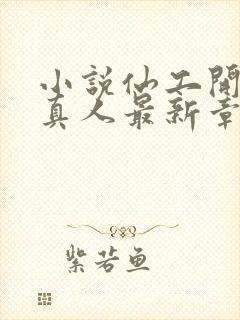 小說仙工開
真人最新章
紫若鱼